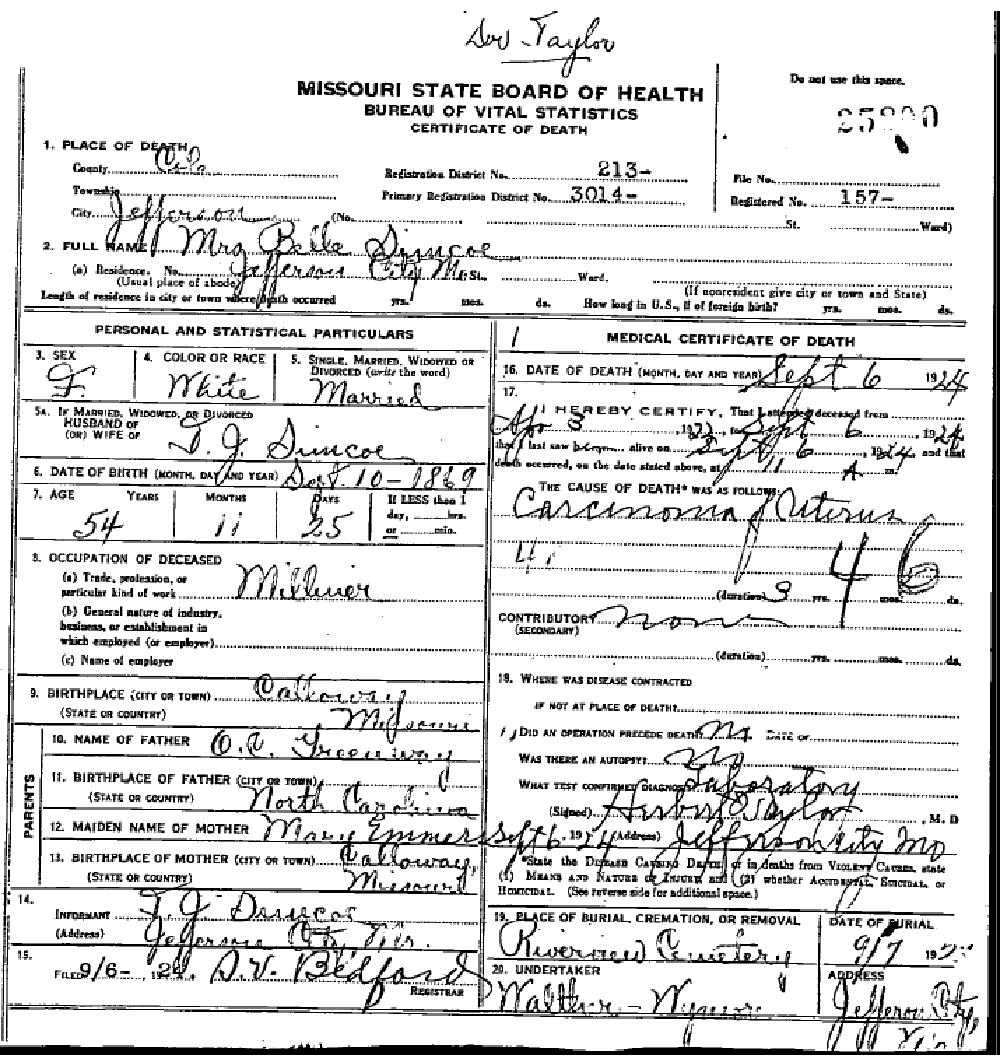 Dr Taylor
MISSOURI STATE BOARD OF HEALTH
BUREAU OF VITAL STATISTICS
CERTIFICATE OF DEATH
Do not use this space.
1. PLACE OF DEATH
County Cole Registration District No. 213- File No.
Township Primary Registration District No. 3014- Registered No. 157-
City Jefferson (No. St. Ward)
2. FULL NAME Mrs Belle Simcoe
(a) Residence. No. Jefferson City Mo St. Ward.
(Usual place of abode) (If nonresident give city or town and State)
Length of residence in city or town where death occurred yrs. mos. ds. How long in U.S., if of foreign birth? yrs. mos. ds.
PERSONAL AND STATISTICAL PARTICULARS
3. SEX F. 4. COLOR OR RACE White 5. SINGLE, MARRIED, WIDOWED OR DIVORCED (write the word) Married
5A. IF MARRIED, WIDOWED, OR DIVORCED
HUSBAND OF
(OR) WIFE OF T. J. Simcoe
6. DATE OF BIRTH (MONTH, DAY AND YEAR) Sept. 10-1869
7. AGE YEARS MONTHS DAYS If LESS than 1
day, hrs.
54 11 25 or min.
8. OCCUPATION OF DECEASED
(a) Trade, profession, or
particular kind of work Milliner
(b) General nature of industry,
business, or establishment in
which employed (or employer)
(c) Name of employer
9. BIRTHPLACE (CITY OR TOWN) Calloway
(STATE OR COUNTRY) Missouri
PARENTS
10. NAME OF FATHER Greenway
11. BIRTHPLACE OF FATHER (CITY OR TOWN)
(STATE OR COUNTRY) North Carolina
12. MAIDEN NAME OF MOTHER Mary Emmerson
13. BIRTHPLACE OF MOTHER (CITY OR TOWN) Calloway
(STATE OR COUNTRY) Missouri
14.
INFORMANT T. J. Simcoe
(Address) Jefferson City Mo.
15.
FILED 9/6- 1924 S.V. Bedford
REGISTRAR
1
MEDICAL CERTIFICATE OF DEATH
16. DATE OF DEATH (MONTH, DAY AND YEAR) Sept 6 1924
17.
I HEREBY CERTIFY, That I attended deceased from
Apr 3, 192 to Sept 6, 1924
that I last saw her alive on Sept 6, 1924 and that
death occurred, on the date stated above, at 11 A m.
THE CAUSE OF DEATH* WAS AS FOLLOWS:
Carcinoma of Uterus
46
(duration) 3 yrs. mos. ds.
CONTRIBUTORY none
(SECONDARY)
(duration) yrs. mos. ds.
18. WHERE WAS DISEASE CONTRACTED
IF NOT AT PLACE OF DEATH?
DID AN OPERATION PRECEDE DEATH? No DATE OF
WAS THERE AN AUTOPSY? No
WHAT TEST CONFIRMED DIAGNOSIS? Laboratory
(Signed) Taylor, M. D
Sept 6, 1924 (Address) Jefferson City Mo
*State the DISEASE CAUSING DEATH, or in deaths from VIOLENT CAUSES, state
(1) MEANS AND NATURE OF INJURY, and (2) whether ACCIDENTAL, SUICIDAL, or
HOMICIDAL. (See reverse side for additional space.)
19. PLACE OF BURIAL, CREMATION, OR REMOVAL DATE OF BURIAL
Riverview Cemetery 9/7 192
20. UNDERTAKER ADDRESS
Walther - Wymore Jefferson City,